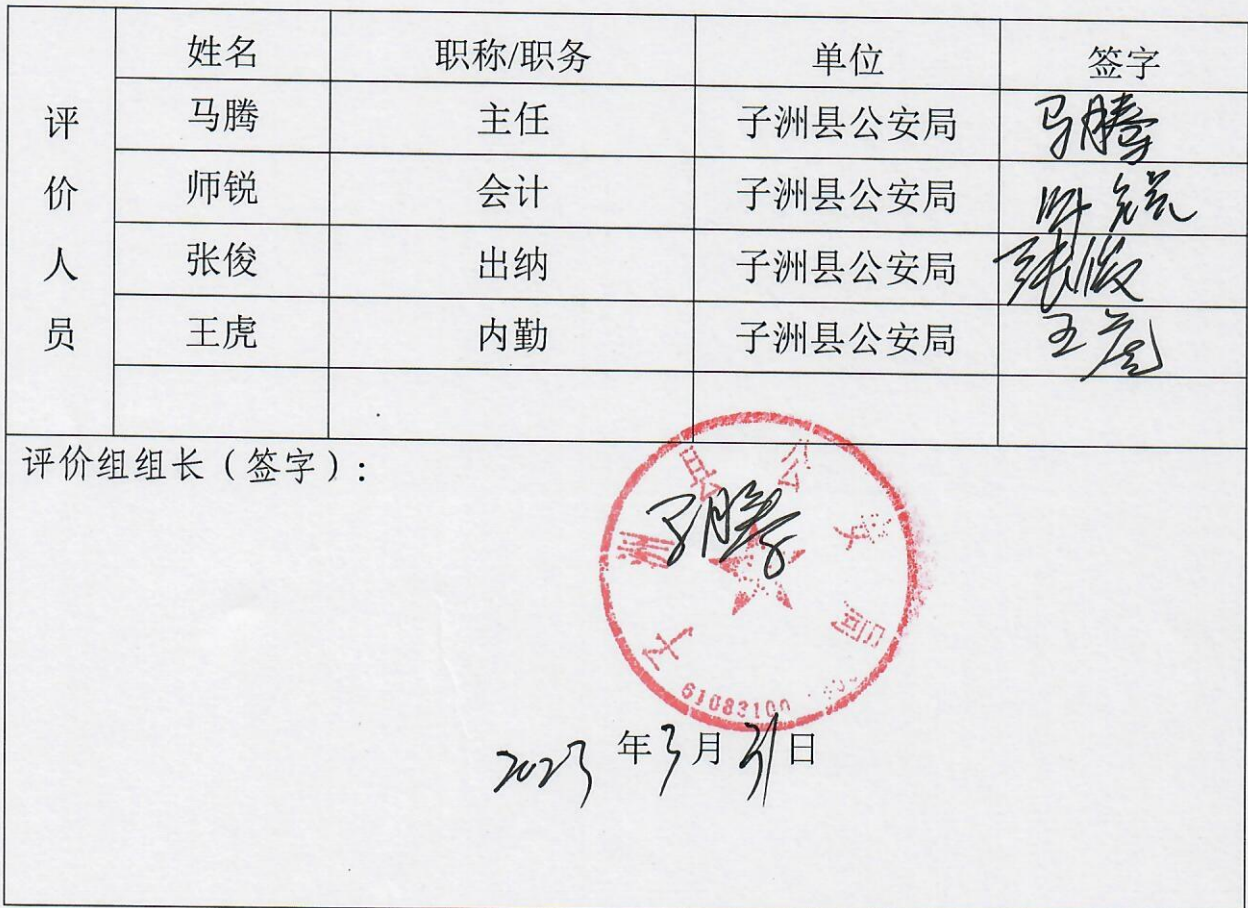 姓名 职称/职务 单位 签字
评价人员
马腾 主任 子洲县公安局 马腾
师锐 会计 子洲县公安局 师锐
张俊 出纳 子洲县公安局 张俊
王虎 内勤 子洲县公安局 王虎
评价组组长（签字）：
马腾
子洲县公安局
61083100
2023年3月31日